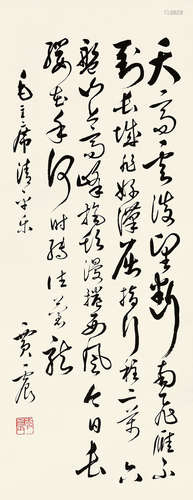 天高云淡望断南飛雁不
到长城非好漢屈指行程二萬六
盤山上高峰红旗漫捲西風今日长
缨在手何时缚住蒼龙
毛主席清平乐
贾震